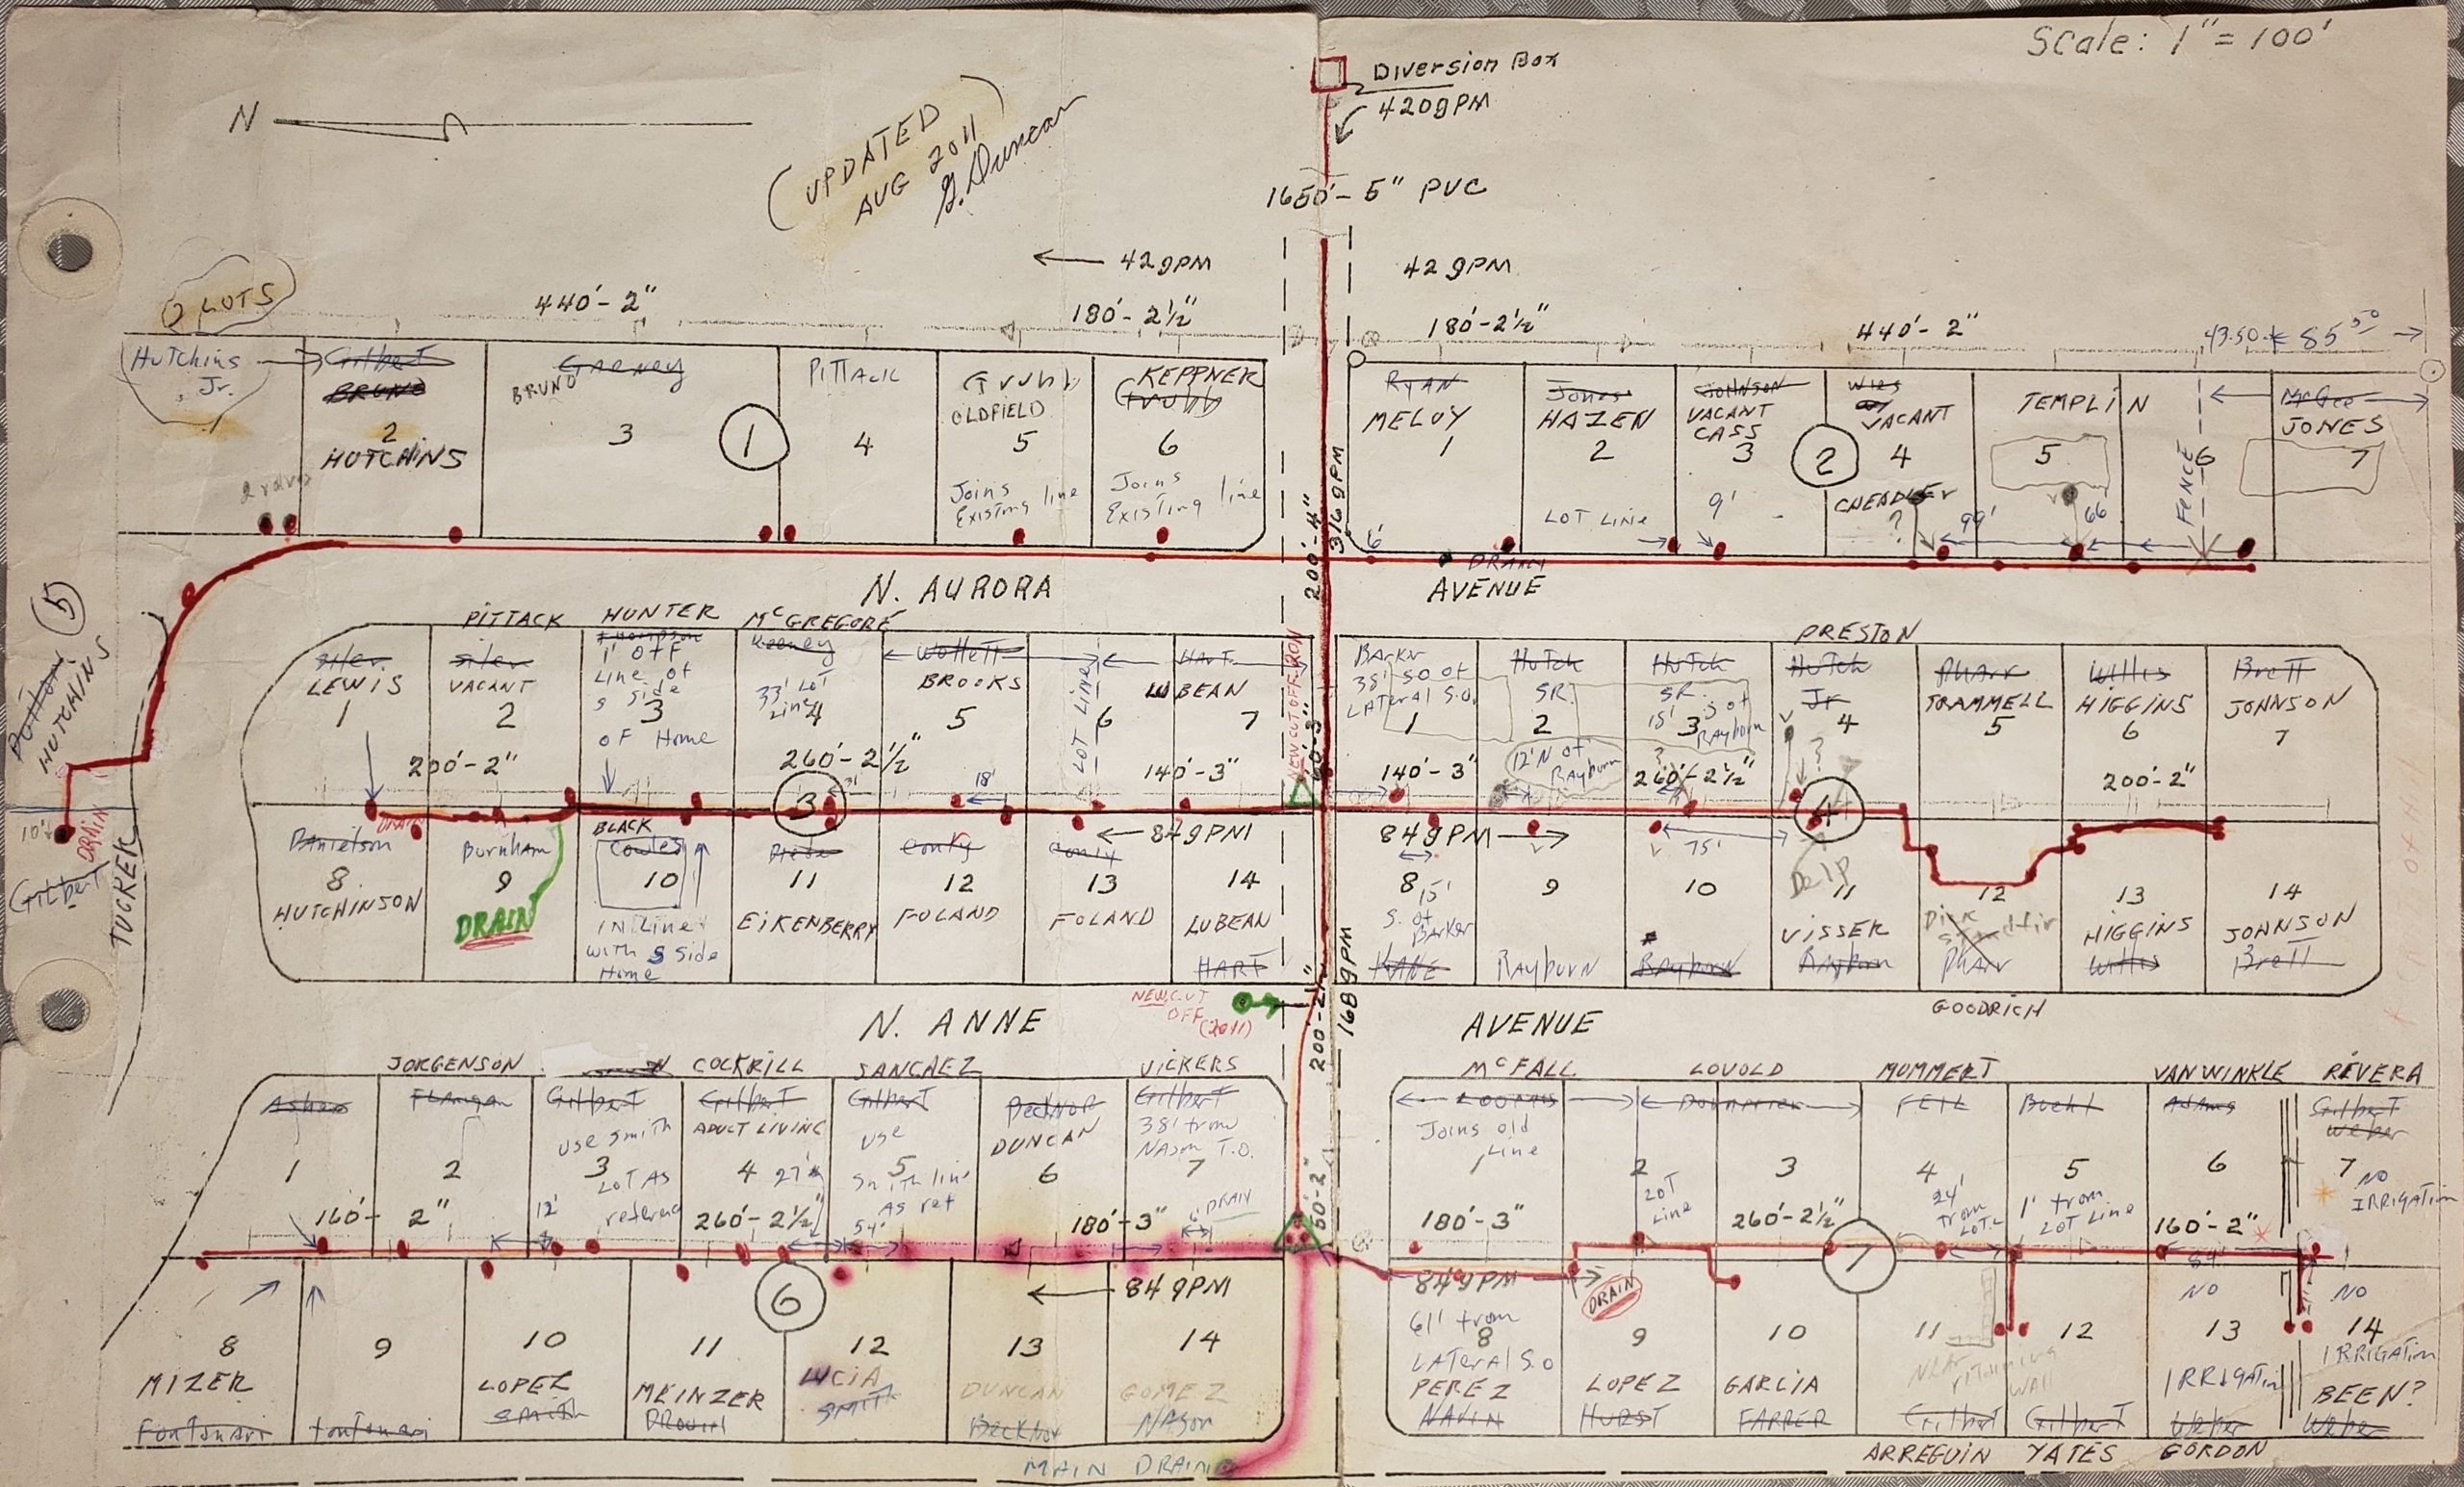 Scale: 1"=100'
Diversion Box
420gPM
N
(UPDATED
AUG 2011
G. Duncan)
1650'- 5" PVC
42gPM
42gPM
2 LOTS
440'-2"
180'-2½"
180'-2½"
440'-2"
43.50
85 50
Hutchins
Jr.
Gilbert
BRUNO
2
HUTCHINS
BRUNO
3
1
PITTACK
4
Grubb
OLDFIELD
5
Joins
Existing line
KEPPNER
Grubb
6
Joins
Existing line
RYAN
MELOY
1
Jones
HAZEN
2
LOT Line
JOHNSON
VACANT
CASS
3
9'
2
VACANT
4
?
TEMPLIN
5
66
FENCE
6
McGee
JONES
7
2 valves
6'
99'
DRAIN
316gPM
200'-4"
N. AURORA
AVENUE
5
HUTCHINS
10'
DRAIN
Gilbert
TUCKER
PITTACK
HUNTER
McGREGORE
PRESTON
LEWIS
1
VACANT
2
200'-2"
Thompson
1' OFF
Line of
S Side
3
OF Home
Keeney
33' LOT
Line
4
260'-2½"
BROOKS
5
18'
LOT LINE
6
HART
LUBEAN
7
140'-3"
NEW CUT OFF 2011
Barkr
35' SO of
LATERAL S.O.
1
140'-3"
Hutch
SR.
2
12'N of
Rayburn
Hutch
SR.
15' S of
3
Rayburn
?
260'-2½"
Hutch
Jr
4
?
Pharr
TRAMMELL
5
Willis
HIGGINS
6
200'-2"
Brett
JOHNSON
7
3
4
DRAIN
84gPM
84gPM
75'
Danielson
8
HUTCHINSON
Burnham
9
DRAIN
BLACK
Cowles
10
IN Line
with S side
Home
11
EIKENBERRY
Conly
12
FOLAND
Conly
13
FOLAND
14
LUBEAN
HART
8
15'
S. of
Barker
KANE
9
Rayburn
10
Rayburn
Delp
11
VISSER
Rayburn
12
Pharr
13
HIGGINS
Willis
14
JOHNSON
Brett
GOODRICH
NEW CUT
OFF
(2011)
200'-2½"
168gPM
N. ANNE
AVENUE
JORGENSON
COCKRILL
SANCHEZ
VICKERS
McFALL
LOVOLD
MUMMERT
VANWINKLE
RIVERA
Asher
1
160'-2"
Flanigan
2
Gilbert
Use Smith
3
LOT AS
12'
Gilbert
ADULT LIVING
4
27'
260'-2½"
Gilbert
Use
5
Smith line
As ref
54'
Becknor
DUNCAN
6
180'-3"
Gilbert
38' from
Nason T.O.
7
6'
DRAIN
50'-2"
LOOMIS
Joins old
Line
1
180'-3"
2
LOT
Line
3
260'-2½"
FEIL
4
24'
from
Buehl
5
1' from
LOT Line
Adams
6
160'-2"
Gilbert
Weber
7
NO
IRRIGATION
6
7
84gPM
84gPM
DRAIN
8
MIZER
Fontanari
9
Fontanari
10
LOPEZ
Smith
11
MEINZER
12
LUCIA
SMITH
13
DUNCAN
Becknor
14
GOMEZ
Nason
61' from
8
LATERAL S.O
PEREZ
NAVIN
9
LOPEZ
HURST
10
GARCIA
FARRER
11
Gilbert
12
Gilbert
NO
13
IRRIGATION
Weber
NO
14
IRRIGATION
BEEN?
Weber
ARREGUIN
YATES
GORDON
MAIN DRAIN